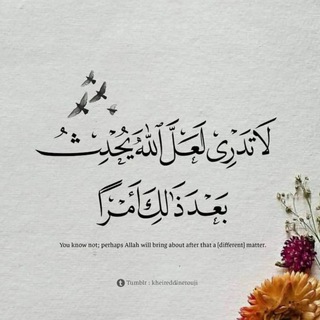 لَا تَدْرِى لَعَلَّ ٱللَّهَ يُحْدِثُ
بَعْدَ ذَٰلِكَ أَمْرًا
You know not; perhaps Allah will bring about after that a [different] matter.
Tumblr : kheireddinetouii